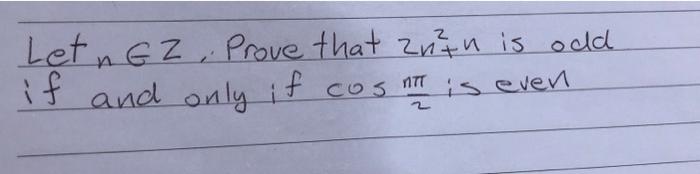 Let n ∈ Z. Prove that 2n²+n is odd
if and only if cos nπ/2 is even